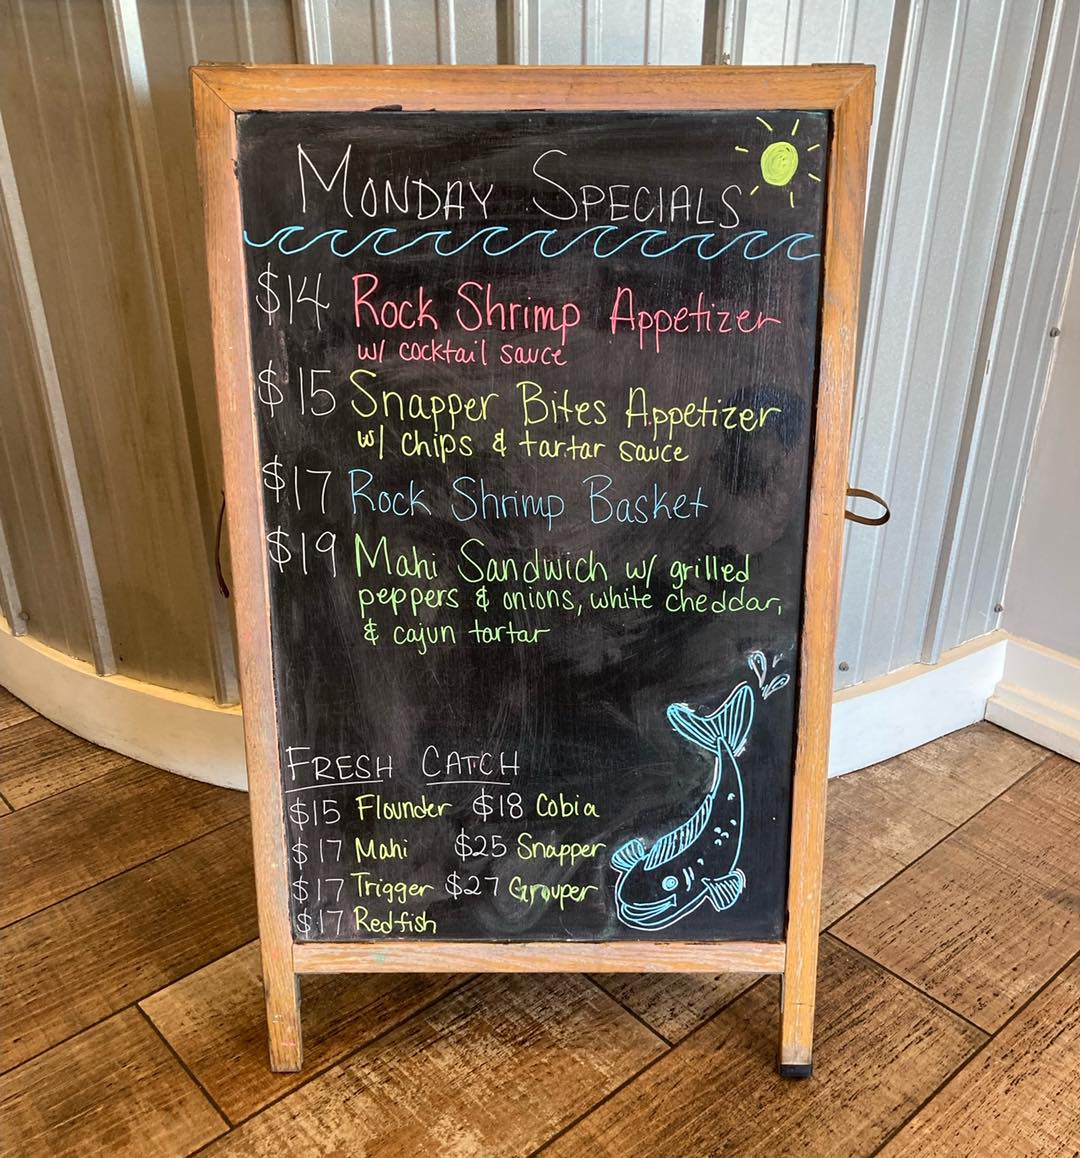 Monday Specials
$14 Rock Shrimp Appetizer
w/ cocktail sauce
$15 Snapper Bites Appetizer
w/ chips & tartar sauce
$17 Rock Shrimp Basket
$19 Mahi Sandwich w/ grilled
peppers & onions, white cheddar,
& cajun tartar
Fresh Catch
$15 Flounder $18 Cobia
$17 Mahi $25 Snapper
$17 Trigger $27 Grouper
$17 Redfish